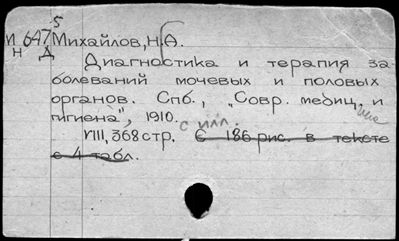 5
И 647 Михайлов, Н.А.
Н Д
Диагностика и терапия за-
болеваний мочевых и половых
органов. Спб., "Совр. медиц. и
гигиена", 1910.
с илл.
VIII, 368 стр. С 186 рис. в тексте
с 4 табл.